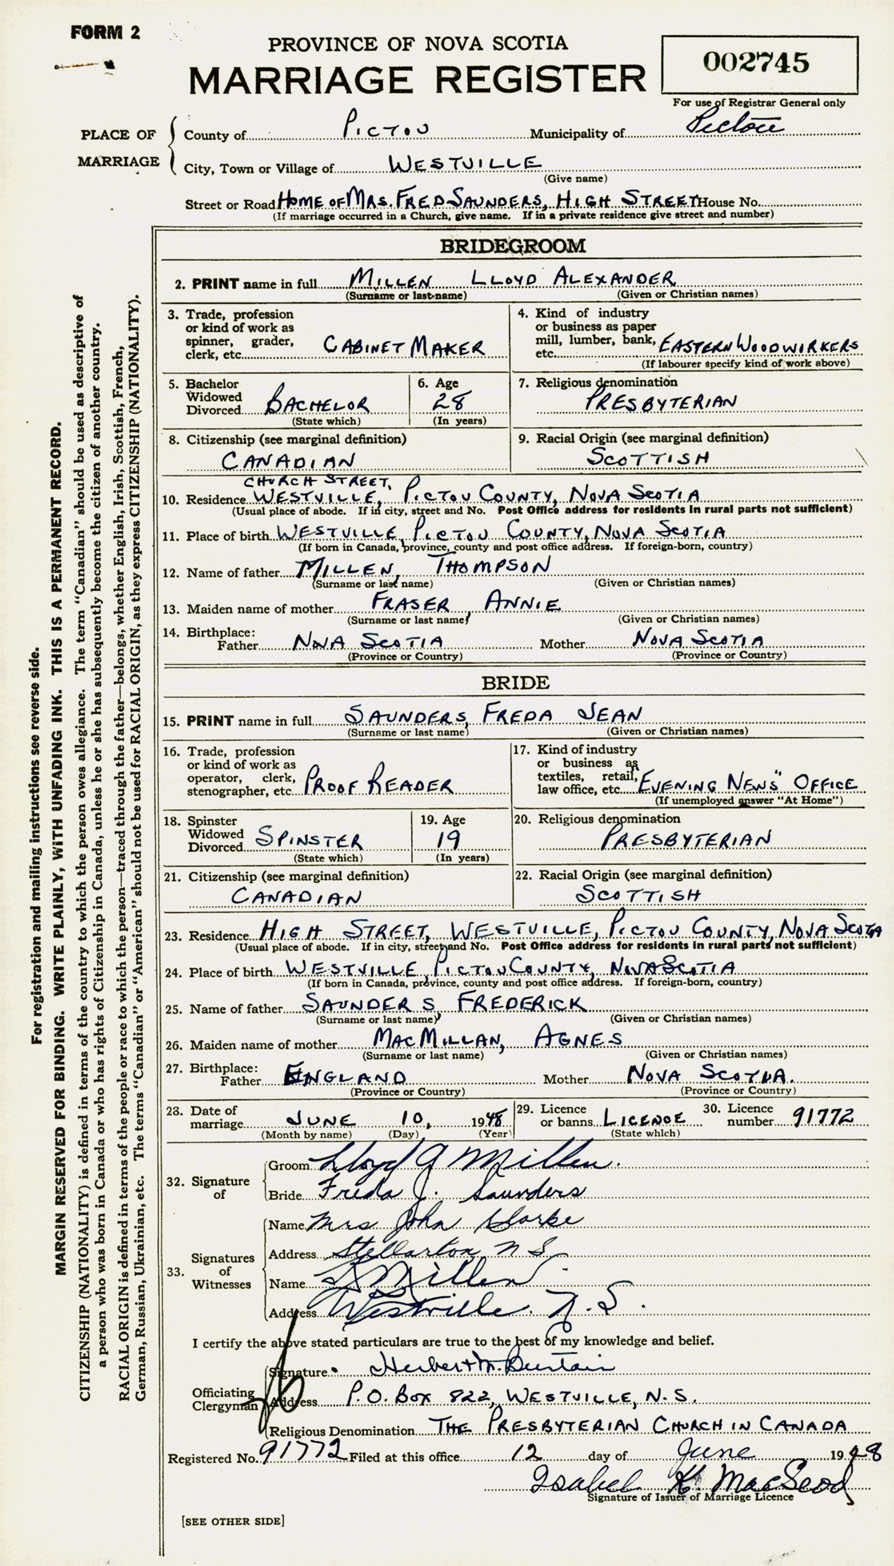 FORM 2
PROVINCE OF NOVA SCOTIA
MARRIAGE REGISTER
002745
For use of Registrar General only
PLACE OF MARRIAGE
County of Pictou Municipality of Pictou
City, Town or Village of Westville
(Give name)
Street or Road Home of Mrs. Fred Saunders, High Street House No.
(If marriage occurred in a Church, give name. If in a private residence give street and number)
BRIDEGROOM
2. PRINT name in full Millen Lloyd Alexander
(Surname or last name) (Given or Christian names)
3. Trade, profession or kind of work as spinner, grader, clerk, etc. Cabinet Maker
4. Kind of industry or business as paper mill, lumber, bank, etc. Eastern Woodwirkers
(If labourer specify kind of work above)
5. Bachelor Widowed Divorced Bachelor
(State which)
6. Age 28
(In years)
7. Religious denomination
Presbyterian
8. Citizenship (see marginal definition)
Canadian
9. Racial Origin (see marginal definition)
Scottish
Church Street,
10. Residence Westville, Pictou County, Nova Scotia
(Usual place of abode. If in city, street and No. Post Office address for residents in rural parts not sufficient)
11. Place of birth Westville, Pictou County, Nova Scotia
(If born in Canada, province, county and post office address. If foreign-born, country)
12. Name of father Millen, Thompson
(Surname or last name) (Given or Christian names)
13. Maiden name of mother Fraser, Annie
(Surname or last name) (Given or Christian names)
14. Birthplace:
Father Nova Scotia Mother Nova Scotia
(Province or Country) (Province or Country)
BRIDE
15. PRINT name in full Saunders, Freda Jean
(Surname or last name) (Given or Christian names)
16. Trade, profession or kind of work as operator, clerk, stenographer, etc. Proof Reader
17. Kind of industry or business as textiles, retail, law office, etc. "Evening News" Office
(If unemployed answer "At Home")
18. Spinster Widowed Divorced Spinster
(State which)
19. Age 19
(In years)
20. Religious denomination
Presbyterian
21. Citizenship (see marginal definition)
Canadian
22. Racial Origin (see marginal definition)
Scottish
23. Residence High Street, Westville, Pictou County, Nova Scotia
(Usual place of abode. If in city, street and No. Post Office address for residents in rural parts not sufficient)
24. Place of birth Westville, Pictou County, Nova Scotia
(If born in Canada, province, county and post office address. If foreign-born, country)
25. Name of father Saunders, Frederick
(Surname or last name) (Given or Christian names)
26. Maiden name of mother MacMillan, Agnes
(Surname or last name) (Given or Christian names)
27. Birthplace:
Father England Mother Nova Scotia.
(Province or Country) (Province or Country)
28. Date of marriage June 10, 1948
(Month by name) (Day) (Year)
29. Licence or banns Licence
(State which)
30. Licence number 91772
32. Signature of
Groom Lloyd A Millen.
Bride Freda J. Saunders
33. Signatures of Witnesses
Name Mrs John Clarke
Address Stellarton N S
Name Millen
Address Westville N.S.
I certify the above stated particulars are true to the best of my knowledge and belief.
Officiating Clergyman
Signature Herbert
Address P.O. Box 822, Westville, N.S.
Religious Denomination The Presbyterian Church in Canada
Registered No. 91772 Filed at this office 12 day of June 1948
Isabel K. MacLeod
Signature of Issuer of Marriage Licence
[SEE OTHER SIDE]
For registration and mailing instructions see reverse side.
MARGIN RESERVED FOR BINDING. WRITE PLAINLY, WITH UNFADING INK. THIS IS A PERMANENT RECORD.
CITIZENSHIP (NATIONALITY) is defined in terms of the country to which the person owes allegiance. The term "Canadian" should be used as descriptive of
a person who was born in Canada or who has rights of Citizenship in Canada, unless he or she has subsequently become the citizen of another country.
RACIAL ORIGIN is defined in terms of the people or race to which the person—traced through the father—belongs, whether English, Irish, Scottish, French,
German, Russian, Ukrainian, etc. The terms "Canadian" or "American" should not be used for RACIAL ORIGIN, as they express CITIZENSHIP (NATIONALITY).